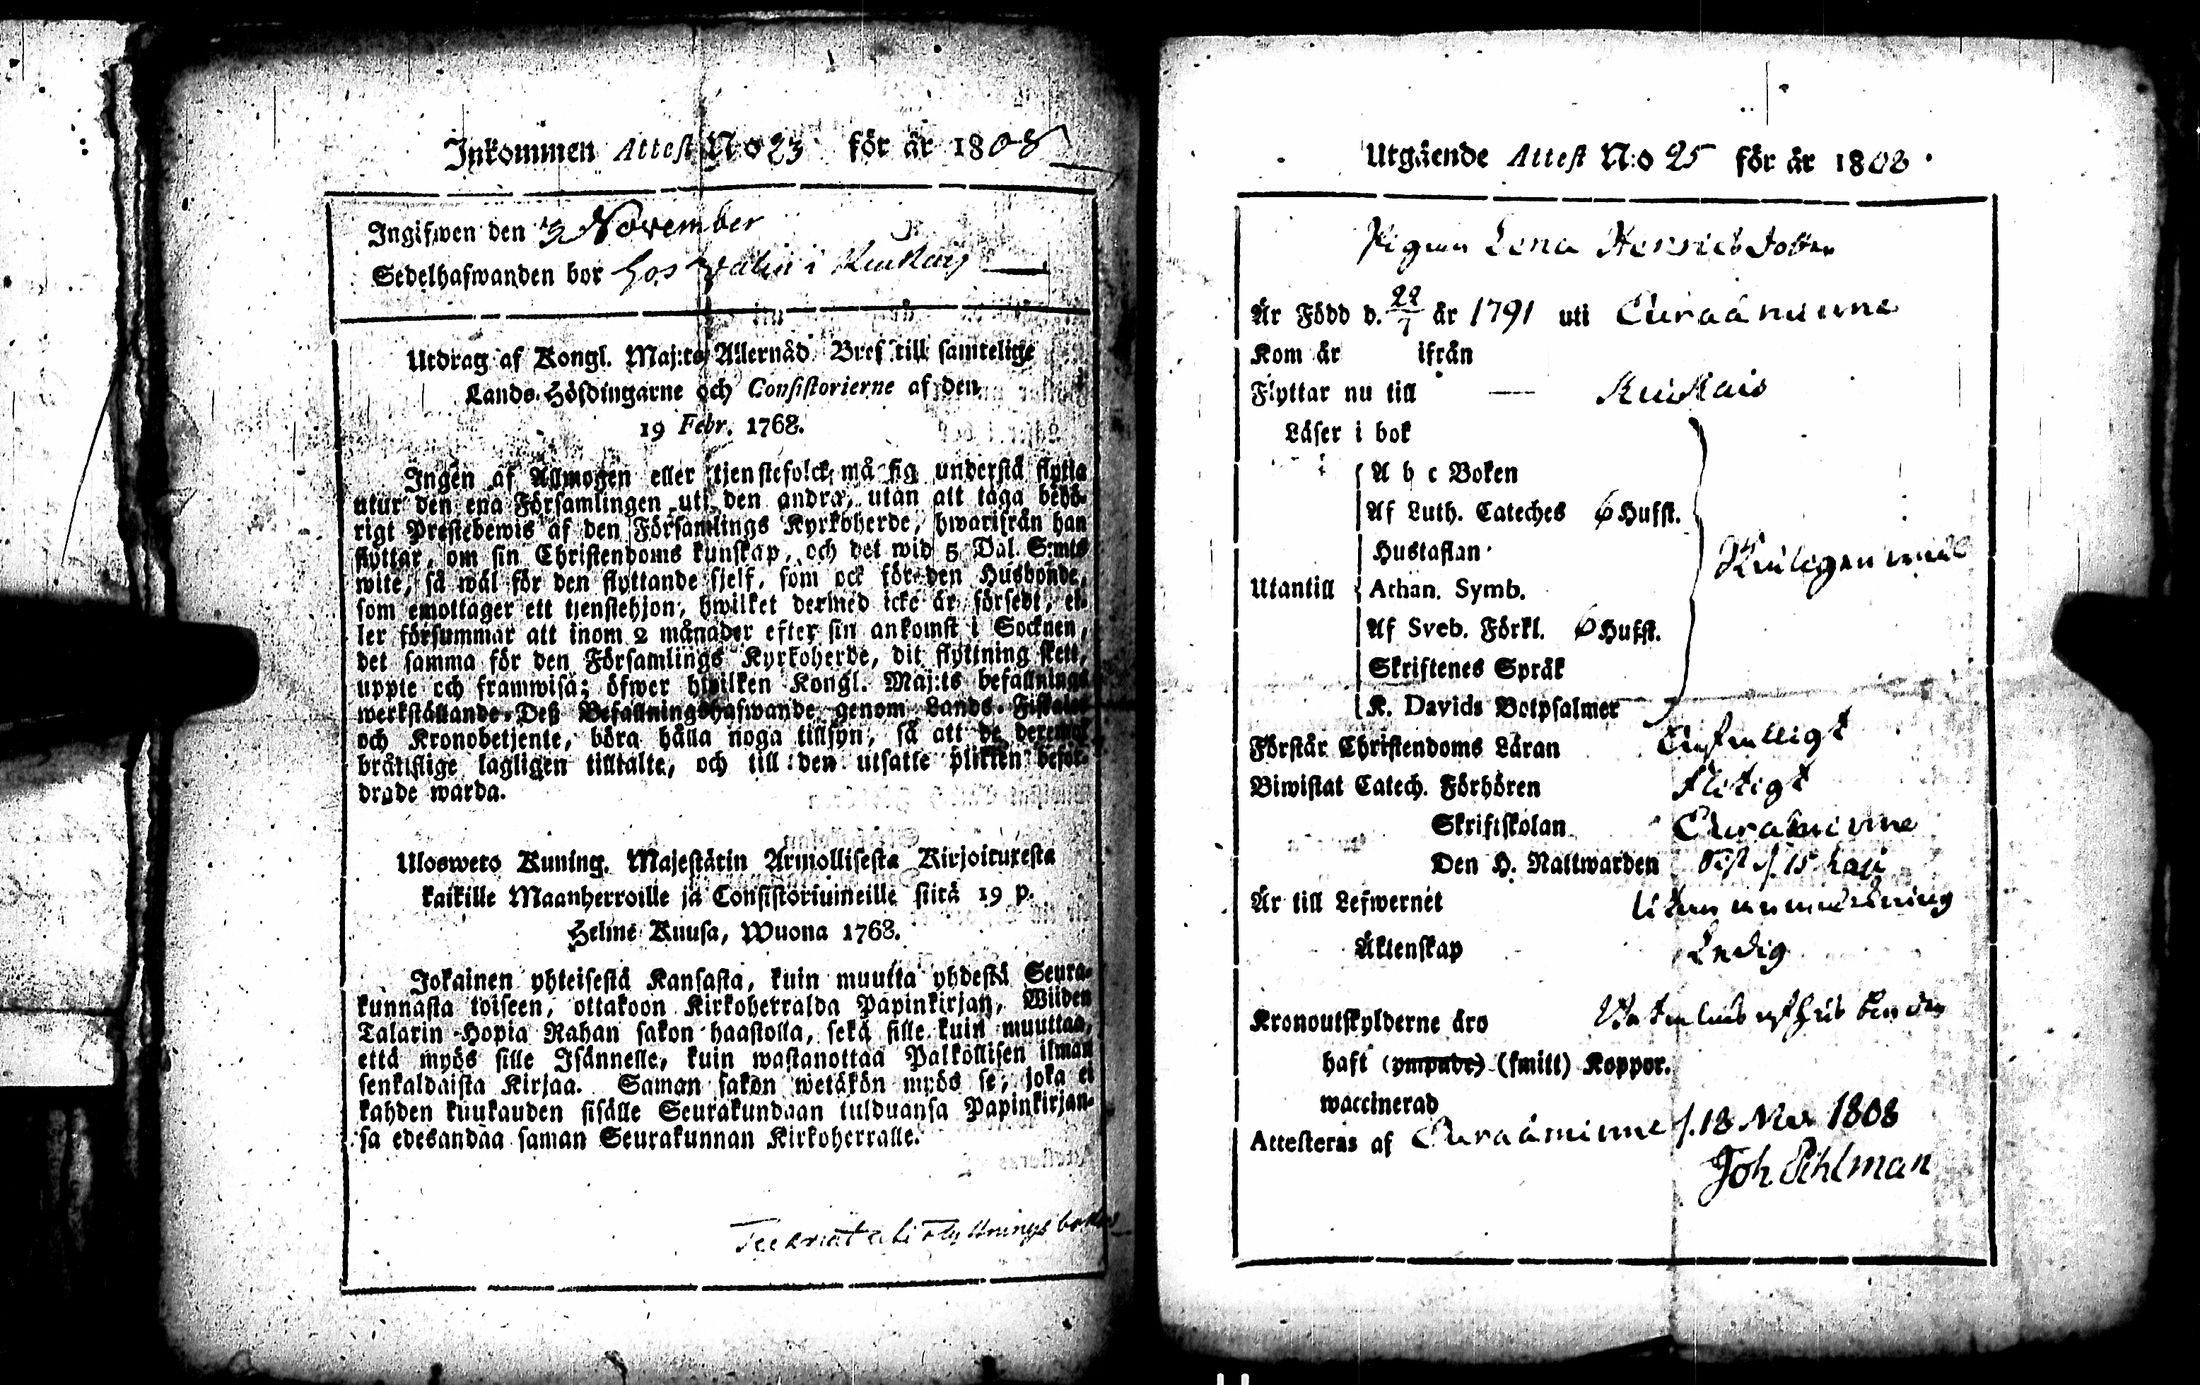 Inkommen Attest No 23 för år 1808
Ingifwen den 3 November
Sedelhafwanden bor hos i Kiukais
Utdrag af Kongl. Maj:ts Allernåd. Bref till samtelige
Lands-Höfdingarne och Consistorierne af den
19 Febr. 1768.
Ingen af Allmogen eller tjenstefolck må sig understå flytta
utur den ena Församlingen uti den andra, utan att taga behö-
rigt Prestebewis af den Församlings Kyrkoherde, hwarifrån han
flyttar, om sin Christendoms kunskap, och det wid 5 Dal. S:mts
wite, så wäl för den flyttande sjelf, som ock för den Husbonde,
som emottager ett tjenstehjon, hwilket dermed icke är försedt, el-
ler försummar att inom 2 månader efter sin ankomst i Socknen,
det samma för den Församlings Kyrkoherde, dit flyttning skett,
uppte och framwisa; öfwer hwilken Kongl. Maj:ts befallnings
werkställande Deß Befallningshafwande genom Lands-Fiskaler
och Kronobetjente, böra hålla noga tillsyn, så att de deremot
bråttslige lagligen tilltalte, och till den utsatte plikten befor-
drade warda.
Ulosweto Kuning. Majestätin Armollisesta Kirjoituxesta
kaikille Maanherroille ja Consistoriumeille siitä 19 p.
Helme Kuusa, Wuona 1768.
Jokainen yhteisestä Kansasta, kuin muutta yhdestä Seura-
kunnasta toiseen, ottakoon Kirkoherralda Papinkirjan, Wiiden
Talarin Hopia Rahan sakon haastolla, sekä sille kuin muuttaa,
että myös sille Isännelle, kuin wastanottaa Palkollisen ilman
senkaldaista Kirjaa. Saman sakon wetäkön myös se, joka ei
kahden kuukauden sisälle Seurakundaan tulduansa Papinkirjan-
sa edesandaa saman Seurakunnan Kirkoherralle.
Utgående Attest N:o 25 för år 1808.
Pigan Lena Henricsdotter
Är Född d. 22/7 år 1791 uti Euraåminne
Kom år ifrån
Flyttar nu till — Kiukais
Läser i bok
A b c Boken
Af Luth. Cateches 6 Hufst.
Hustaflan
Utantill Athan. Symb.
Af Sveb. Förkl. 6 Hufst.
Skriftenes Språk
K. Davids Botpsalmer
Förstår Christendoms Läran Enfalligt
Biwistat Catech. Förhören flitigt
Skriftskolan Euraåminne
Den H. Nattwarden
Är till Lefwernet utan anmärkning
Äktenskap Ledig
Kronoutskylderne äro
haft (ympade) (smitt) Koppor.
waccinerad
Attesteras af Euraåminne d. 18 1808
Joh Pihlman